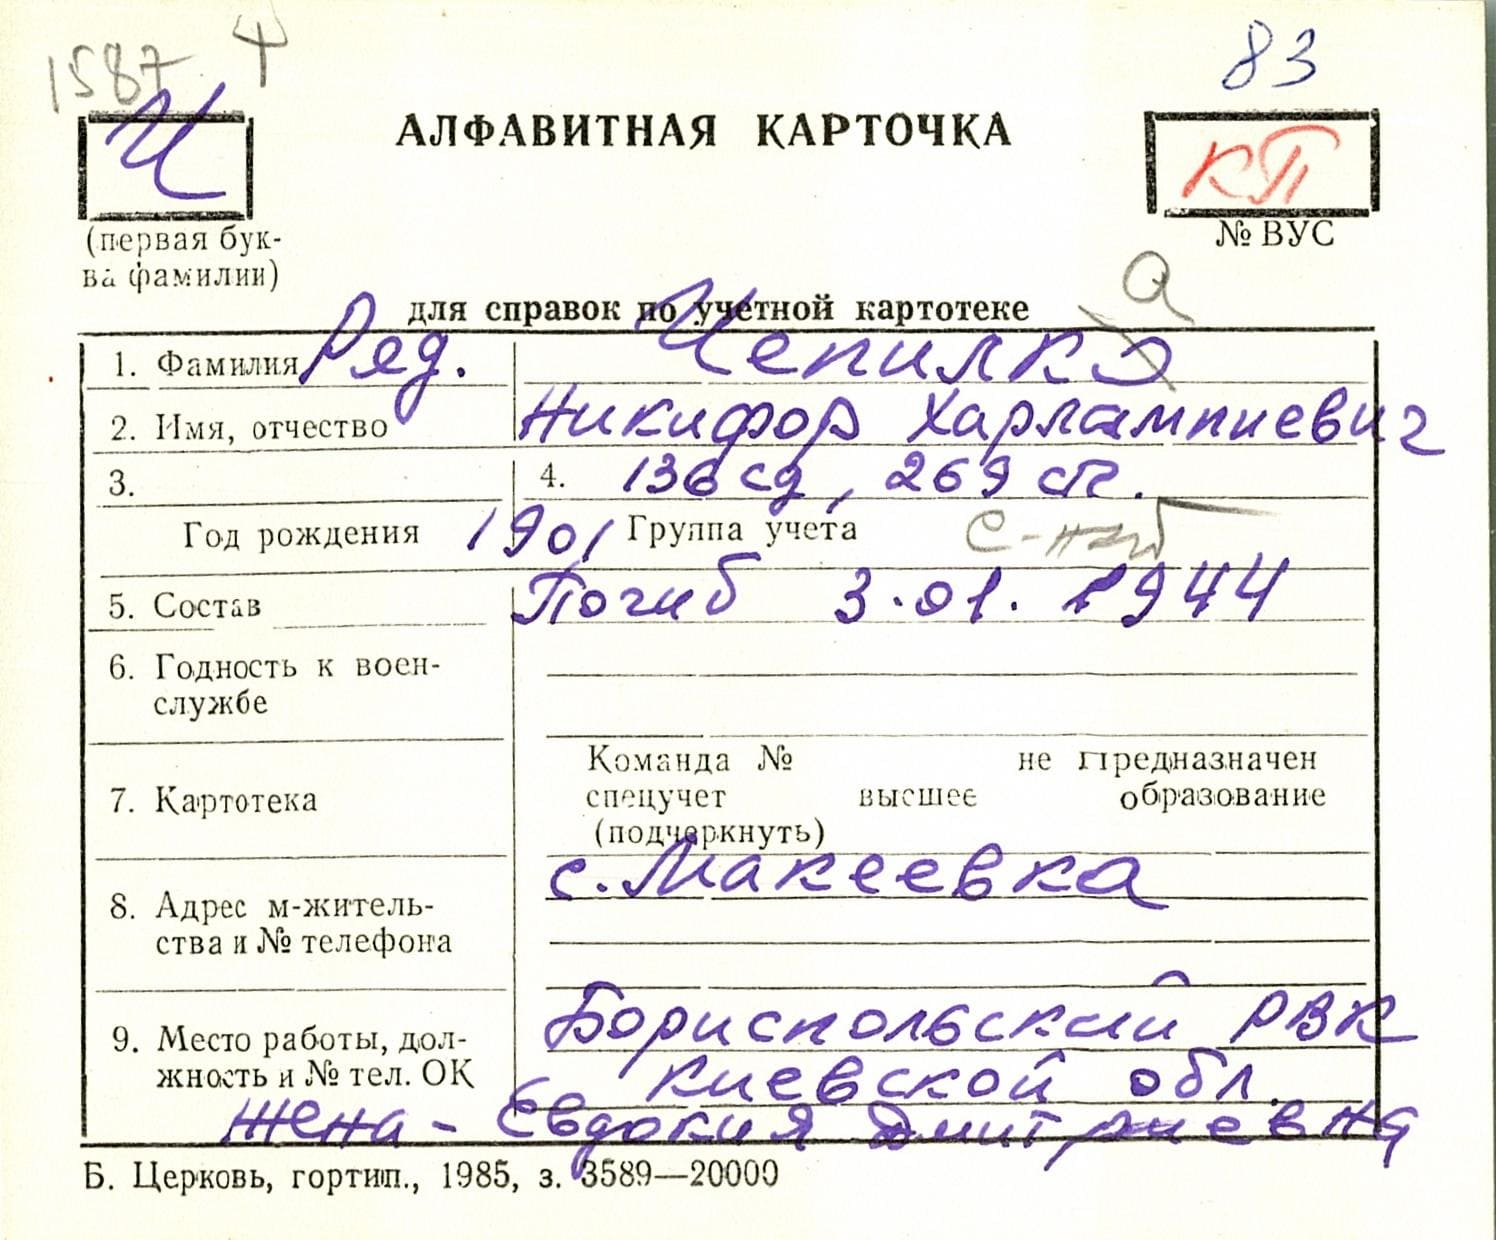 1587 4
83
Ч
АЛФАВИТНАЯ КАРТОЧКА
КП
(первая бук-
ва фамилии)
№ ВУС
для справок по учетной картотеке
а
1. Фамилия Ряд. Чепилко
2. Имя, отчество Никифор Харлампиевич
3. 4. 136 сд, 269 сп.
Год рождения 1901 Группа учета
5. Состав Погиб 3.01.1944
6. Годность к воен-
службе
7. Картотека
Команда № не предназначен
спецучет высшее образование
(подчеркнуть)
8. Адрес м-житель-
ства и № телефона
с. Макеевка
9. Место работы, дол-
жность и № тел. ОК
Бориспольский РВК
Киевской обл.
Жена - Евдокия Дмитриевна
Б. Церковь, гортип., 1985, з. 3589—20000